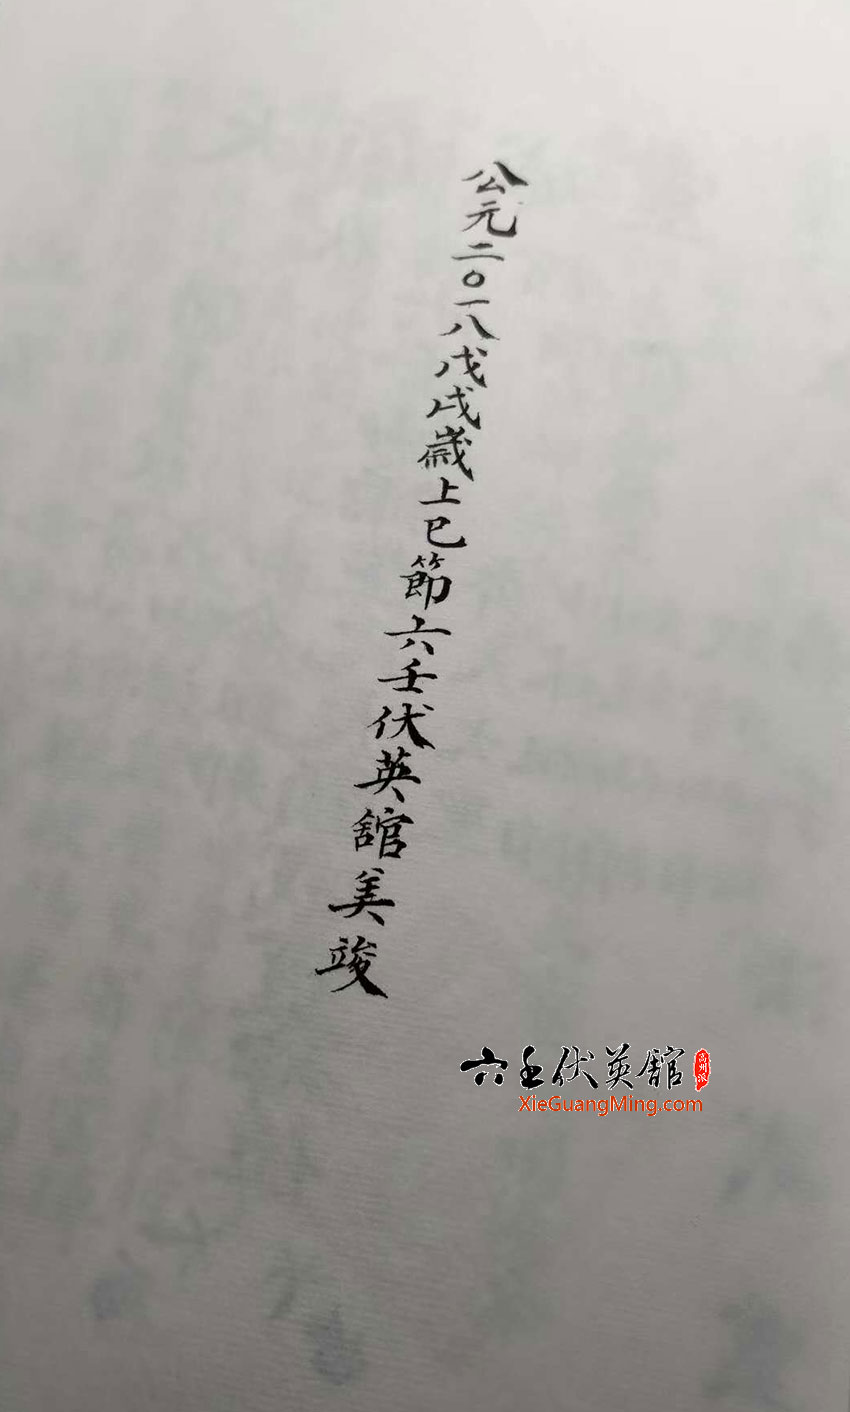 公元二〇一八戊戌歲上巳節六壬伏英舘美竣
六壬伏英舘
高州派
XieGuangMing.com